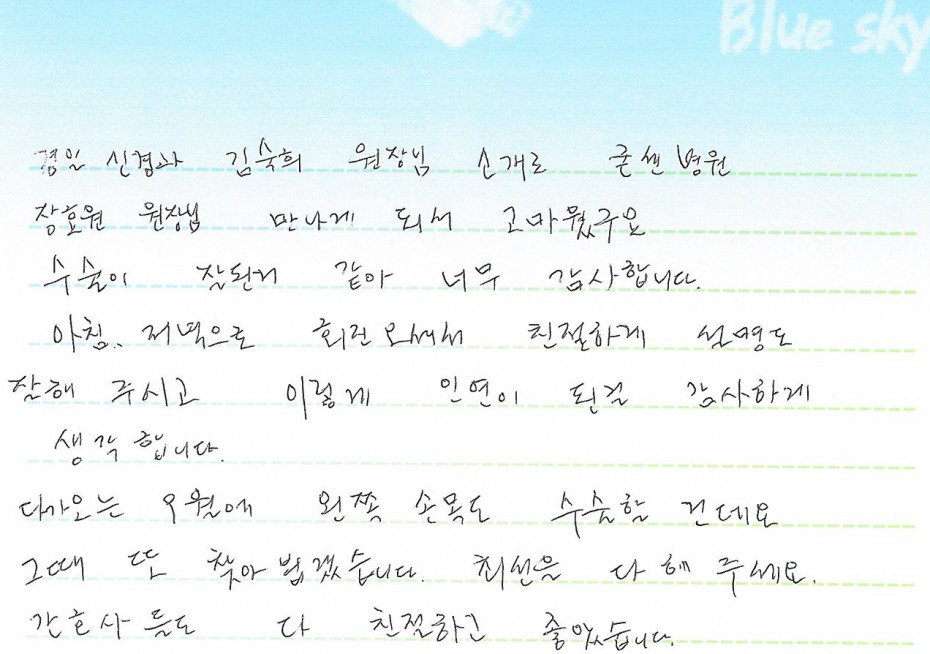 Blue sky
경일 신경과 김숙희 원장님 소개로 굳센병원
장호원 원장님 만나게 되서 고마웠구요
수술이 잘된거 같아 너무 감사합니다.
아침. 저녁으로 회진오셔서 친절하게 설명도
잘해 주시고 이렇게 인연이 된걸 감사하게
생각 합니다.
다가오는 9월에 왼쪽 손목도 수술할 건데요
그때 또 찾아 뵙겠습니다. 최선을 다 해 주세요.
간호사 들도 다 친절하고 좋았습니다.